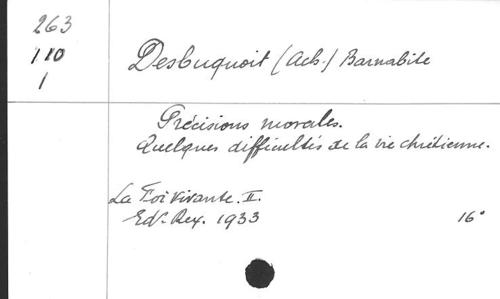 263
110
1
Desbuquoit (Ach.) Barnabite
Précisions morales.
Quelques difficultés de la vie chrétienne.
La Foi vivante. II.
Ed. Rex. 1933 16°